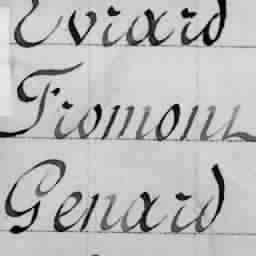 Evrard
Fromont
Genard